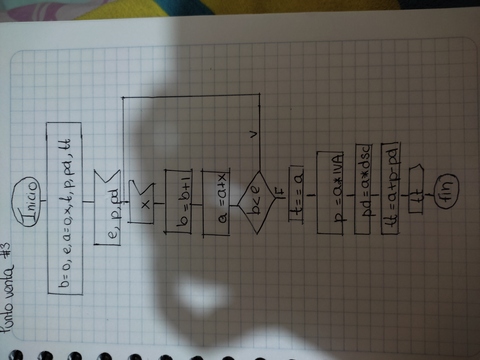 Punto venta #3
Inicio
b=0, e, a=0, x, t, p, pd, tt
e, p, pd
x
b = b+1
a = a+x
b<e
V
F
t== a
p = a*IVA
pd = a*dsc
tt = a+p-pd
tt
fin